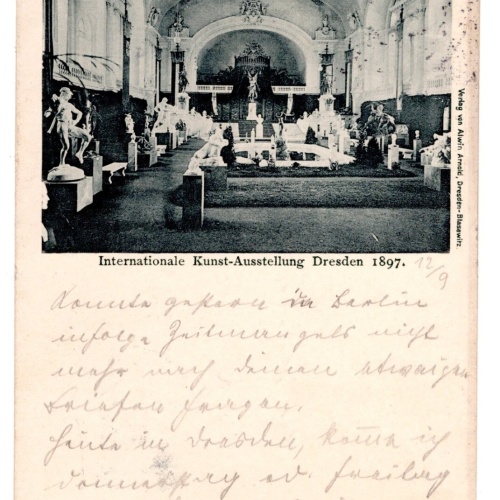 Verlag von Alwin Arnold, Dresden-Blasewitz
Internationale Kunst-Ausstellung Dresden 1897.
12/9
Konnte gestern in Berlin
infolge Zeitmangels nicht
mehr nach deinen etwaigen
Briefen fragen.
Heute in Dresden, komme ich
Donnerstag od. Freitag